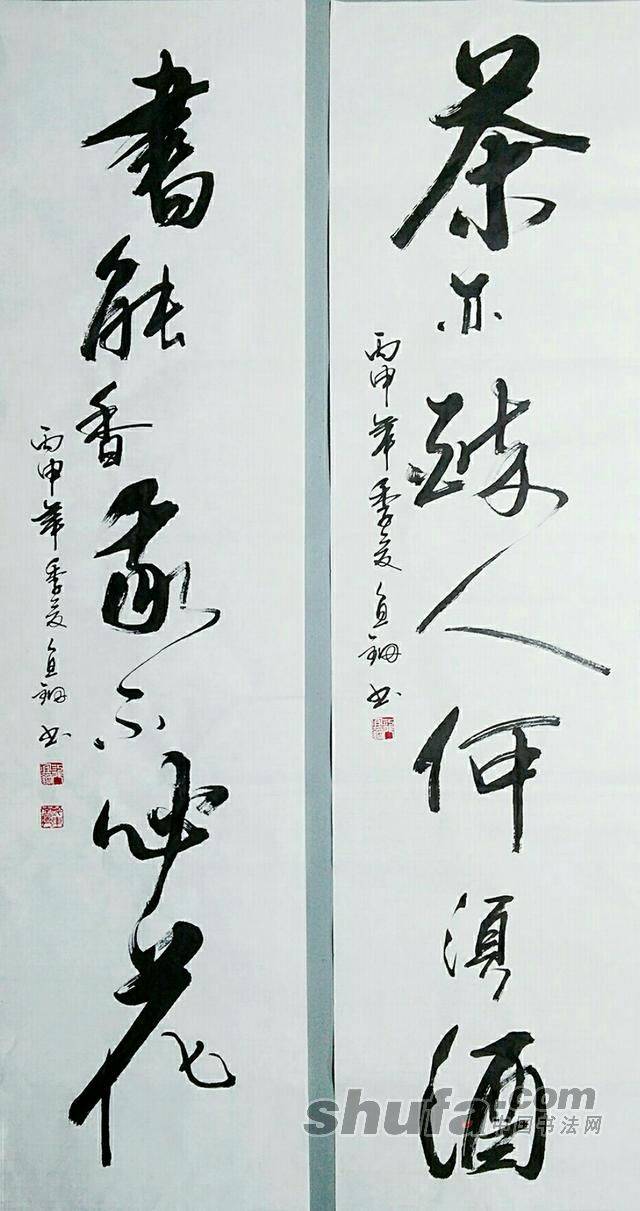 茶亦醉人何須酒
丙申年季夏
書能香我不必花
丙申年季夏
shufa.com
中国书法网